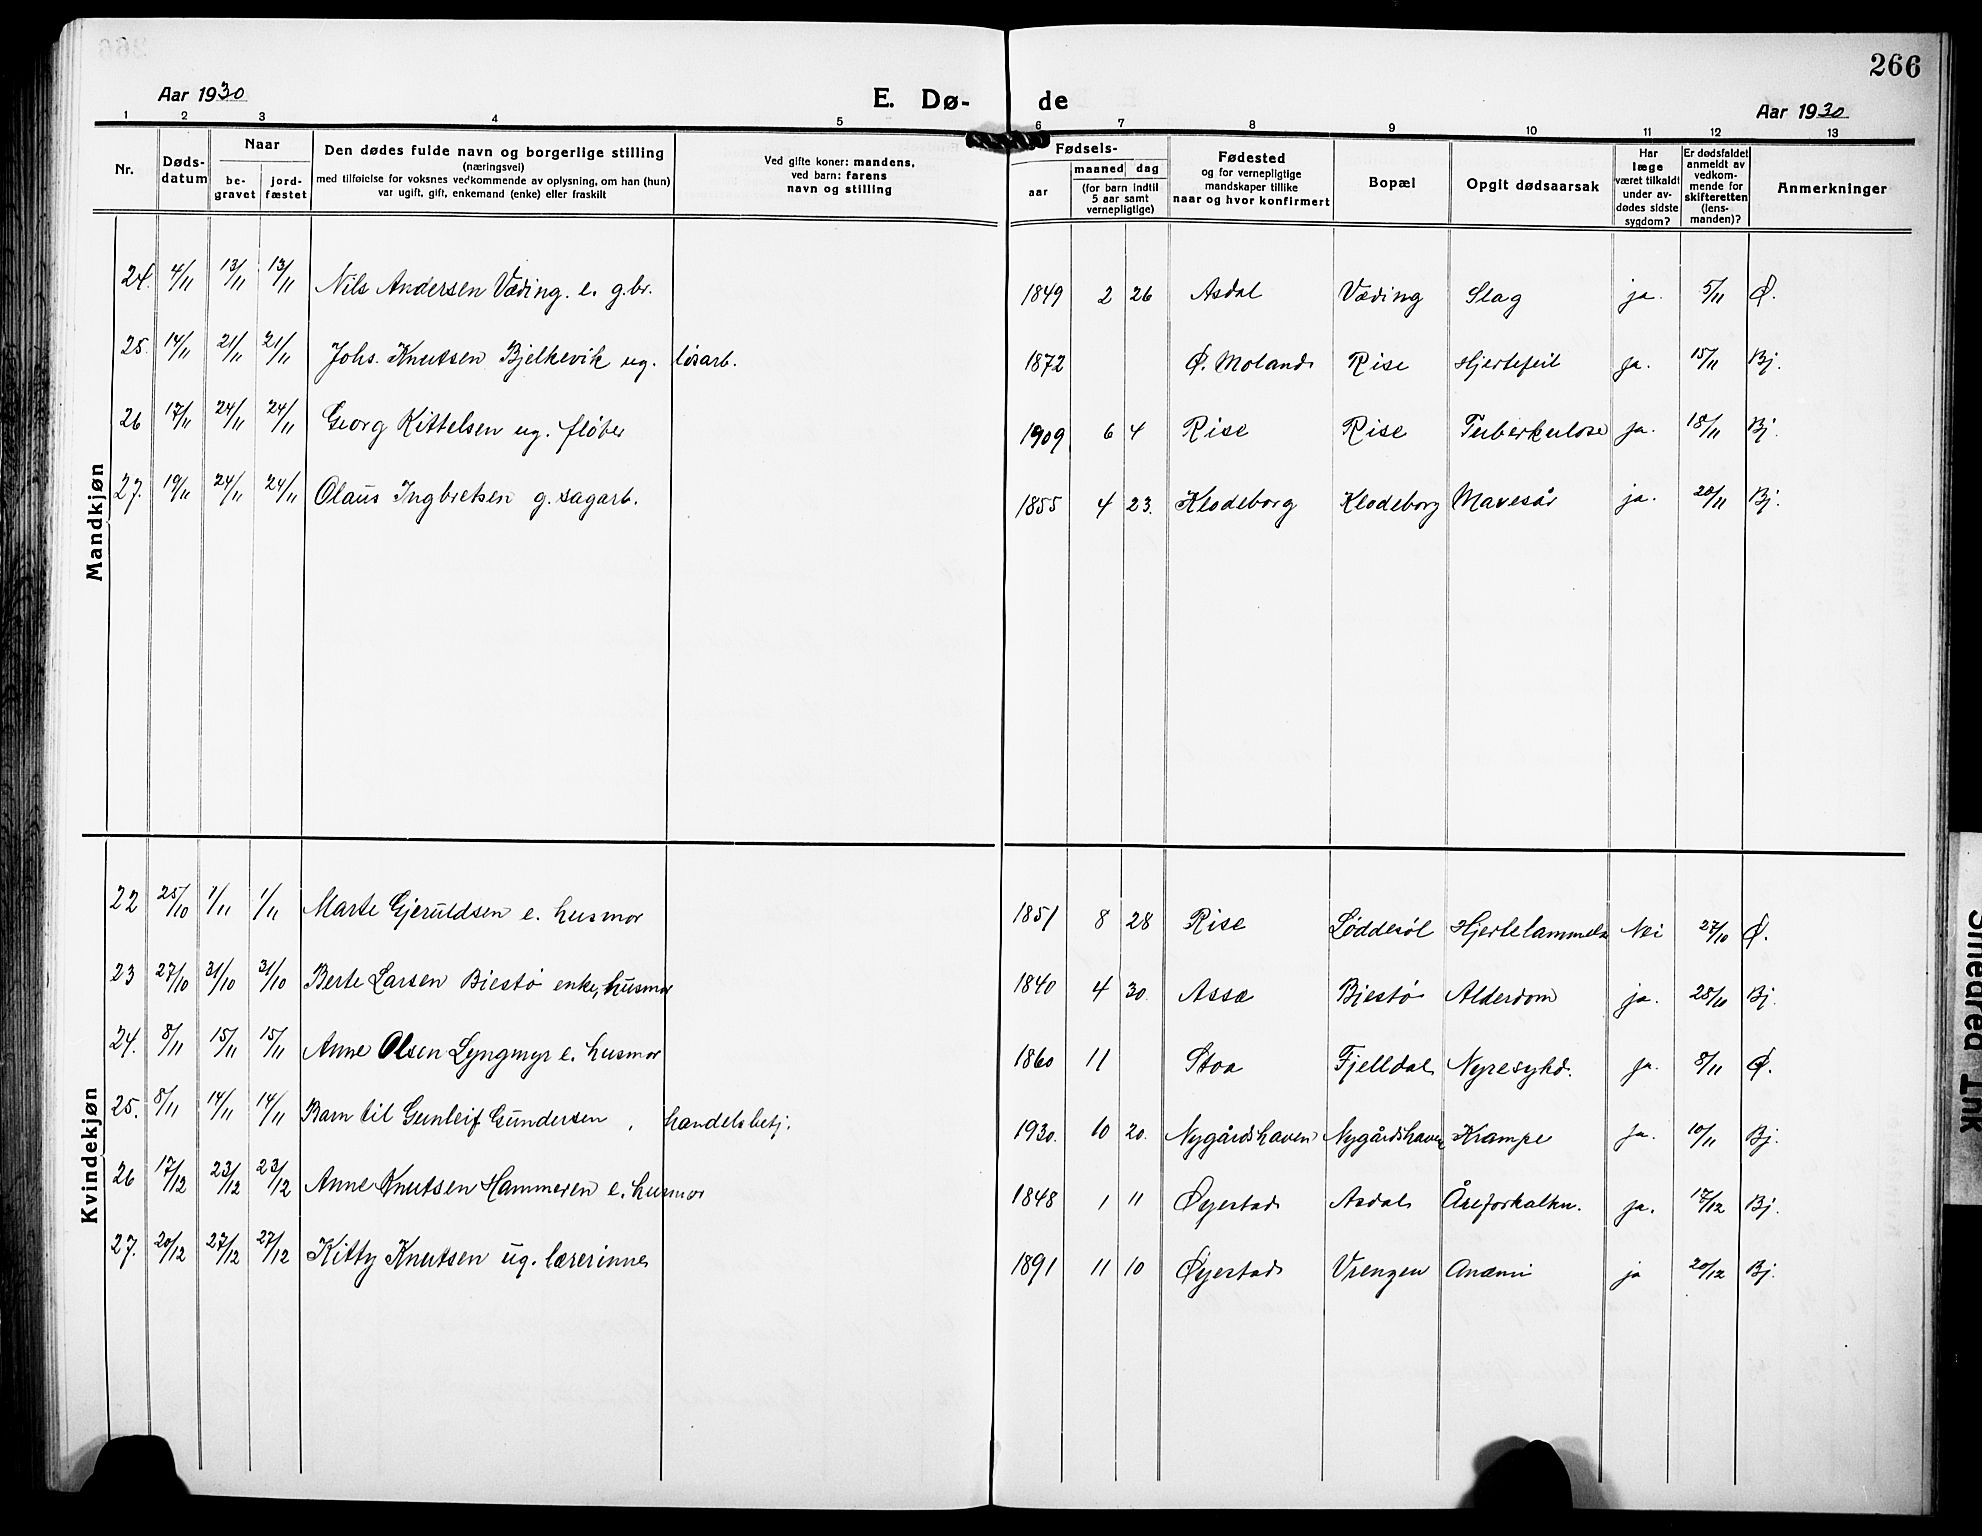 266
Aar 1930
E. Dø- de
Aar 1930
1 2 3 4 5 6 7 8 9 10 11 12 13
Nr.
Døds-
datum
Naar
be-
gravet
jord-
fæstet
Den dødes fulde navn og borgerlige stilling
(næringsvei)
med tilføielse for voksnes vedkommende av oplysning, om han (hun)
var ugift, gift, enkemand (enke) eller fraskilt
Ved gifte koner: mandens,
ved barn: farens
navn og stilling
Fødsels-
aar
maaned dag
(for barn indtil
5 aar samt
vernepligtige)
Fødested
og for vernepligtige
mandskaper tillike
naar og hvor konfirmert
Bopæl
Opgit dødsaarsak
Har
læge
været tilkaldt
under av-
dødes sidste
sygdom?
Er dødsfaldet
anmeldt av
vedkom-
mende for
skifteretten
(lens-
manden)?
Anmerkninger
Mandkjøn
24. 4/11 13/11 13/11 Nils Andersen Væding. e. g.br. 1849 2 26 Asdal Væding Slag ja. 5/11 Ø.
25. 14/11 21/11 21/11 Johs. Knutsen Bjelkevik ug. løsarb. 1872 Ø. Moland Rise Hjertefeil ja. 15/11 Bj.
26 17/11 24/11 24/11 Georg Kittelsen ug. fløter 1909 6 4 Rise Rise Tuberkulose ja. 18/11 Bj.
27. 19/11 24/11 24/11 Olaus Ingbretsen g. sagarb. 1855 4 23. Klodeborg Klodeborg Mavesår ja. 20/11 Bj.
Kvindekjøn
22 25/10 1/11 1/11 Marte Gjeruldsen e. husmor 1851 8 28 Rise Løddesøl Hjertelammelse Nei 27/10 Ø.
23 27/10 31/10 31/10 Berte Larsen Biestø enke, husmor 1840 4 30. Assæ Bjestø Alderdom ja. 28/10 Bj.
24. 8/11 15/11 15/11 Anne Olsen Lyngmyr e. husmor 1860 11 Stoa Fjelldal Nyresykd. ja. 8/11 Ø.
25. 8/11 14/11 14/11 Barn til Gunleif Gundersen, handelsbetj. 1930. 10 20. Nygårdshaven Nygårdshaven Krampe ja. 10/11 Bj.
26 17/12 23/12 23/12 Anne Knutsen Hammeren e. husmor 1848 1 11 Øyestad Asdal Åreforkalkn. ja. 17/12 Bj.
27. 20/12 27/12 27/12 Kitty Knutsen ug. lærerinne 1891 11 10 Øyestad Vrengen Anæmi ja 20/12 Bj.